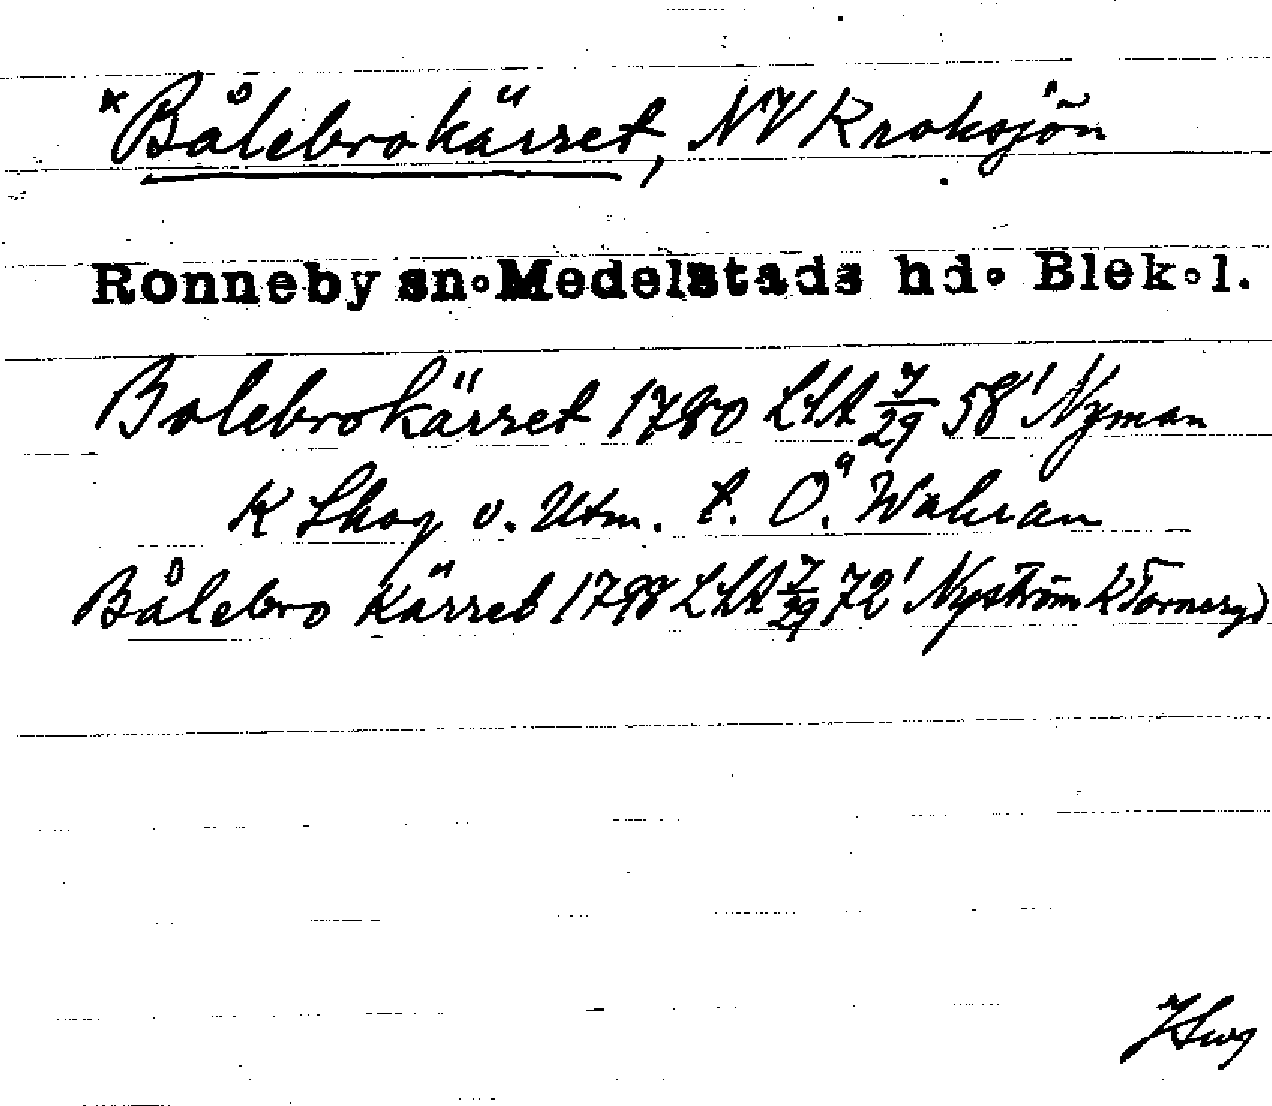 *Bålebrokärret, NV Kroksjön
Ronneby sn. Medelstads hd. Blek. l.
Bolebrokärret 1780 LSA 7/29 58' Nyman
K Skog o. Utm. t. Ö. Wahran
Bålebro Kärret 1798 LSA 7/29 72' Nyström K Torneryd